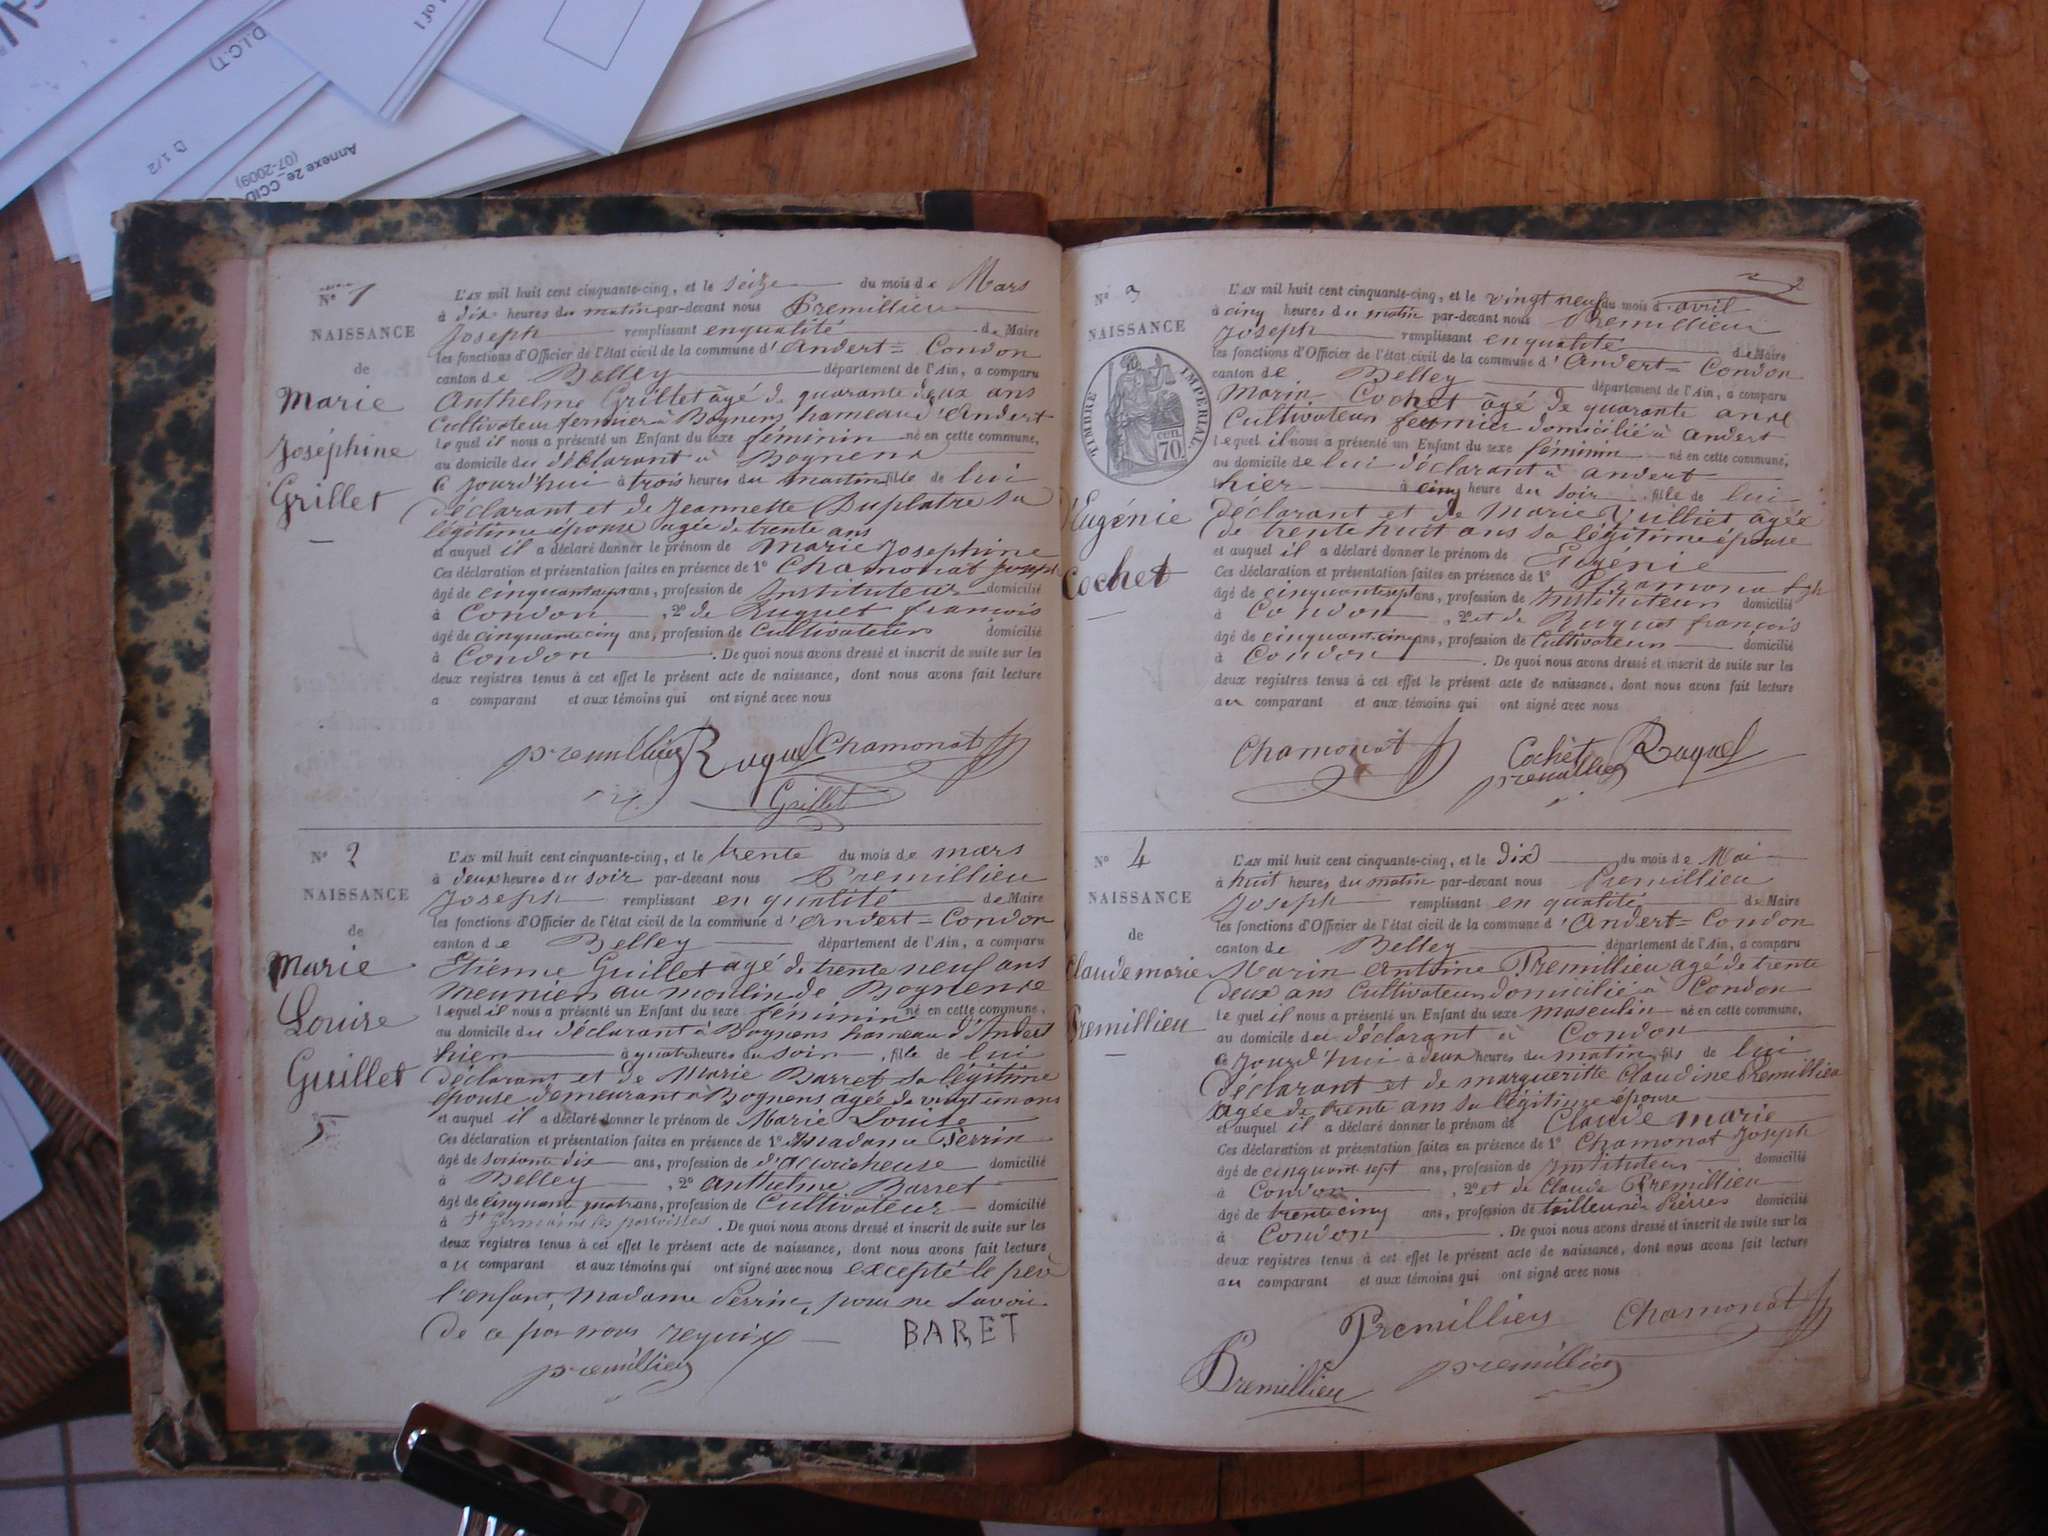 of 1
D.I.C.T)
D 1/2
Annexe 2e_CCID
(07-2009)
N° 1
NAISSANCE
de
Marie
Joséphine
Grillet
L'AN mil huit cent cinquante-cinq, et le seize du mois de Mars
à dix heures du matin par-devant nous Premillieu
Joseph remplissant en qualité de Maire
les fonctions d'Officier de l'état civil de la commune d'Andert=Condon
canton de Belley département de l'Ain, a comparu
Anthelme Grillet âgé de quarante deux ans
Cultivateur fermier à Bognens hameau d'Andert
lequel il nous a présenté un Enfant du sexe féminin né en cette commune,
au domicile du déclarant à Bognens
Ce jourd'hui à trois heures du matin fille de lui
déclarant et de Jeannette Duplatre sa
légitime épouse agée de trente ans
et auquel il a déclaré donner le prénom de Marie Josephine
Ces déclaration et présentation faites en présence de 1° Chamonat Joseph
âgé de cinquante sept ans, profession de Instituteur domicilié
à Condon, 2° de Ruguet françois
âgé de cinquante cinq ans, profession de Cultivateur domicilié
à Condon. De quoi nous avons dressé et inscrit de suite sur les
deux registres tenus à cet effet le présent acte de naissance, dont nous avons fait lecture
a comparant et aux témoins qui ont signé avec nous
premillieu Ruguet Chamonat
Grillet
N° 2
NAISSANCE
de
Marie
Louise
Guillet
L'AN mil huit cent cinquante-cinq, et le trente du mois de mars
à deux heures du soir par-devant nous Premillieu
Joseph remplissant en qualité de Maire
les fonctions d'Officier de l'état civil de la commune d'Andert=Condon
canton de Belley département de l'Ain, a comparu
Etienne Guillet âgé de trente neuf ans
meunier au moulin de Bognens
lequel il nous a présenté un Enfant du sexe féminin né en cette commune,
au domicile du déclarant à Bognens hameau d'Andert
hier à quatre heures du soir, fille de lui
déclarant et de Marie Barret sa légitime
épouse demeurant à Bognens agée de vingt un ans
et auquel il a déclaré donner le prénom de Marie Louise
Ces déclaration et présentation faites en présence de 1° Madame Perrin
âgé de soixante dix ans, profession de d'accoucheuse domicilié
à Belley, 2° anthelme Barret
âgé de cinquante quatre ans, profession de Cultivateur domicilié
à St Germain les paroisses. De quoi nous avons dressé et inscrit de suite sur les
deux registres tenus à cet effet le présent acte de naissance, dont nous avons fait lecture
au comparant et aux témoins qui ont signé avec nous excepté le père
l'enfant, Madame Perrin, pour ne savoir
de ce par nous requis
BARET
premillieu
N° 3
NAISSANCE
TIMBRE IMPERIAL
cen. 70.
Eugénie
Cochet
L'AN mil huit cent cinquante-cinq, et le vingt neuf du mois d'avril
à cinq heures du matin par-devant nous Premillieu
Joseph remplissant en qualité de Maire
les fonctions d'Officier de l'état civil de la commune d'Andert=Condon
canton de Belley département de l'Ain, a comparu
Marin Cochet âgé de quarante ans
Cultivateur fermier domicilié à Andert
lequel il nous a présenté un Enfant du sexe féminin né en cette commune,
au domicile de lui déclarant à Andert
hier à cinq heure du soir, fille de lui
déclarant et de Marie Vulliet agée
de trente huit ans sa légitime épouse
et auquel il a déclaré donner le prénom de Eugénie
Ces déclaration et présentation faites en présence de 1° Chamonat Jph
âgé de cinquante sept ans, profession de Instituteur domicilié
à Condon, 2° et de Ruguet françois
âgé de cinquante cinq ans, profession de Cultivateur domicilié
à Condon. De quoi nous avons dressé et inscrit de suite sur les
deux registres tenus à cet effet le présent acte de naissance, dont nous avons fait lecture
au comparant et aux témoins qui ont signé avec nous
Chamonat Cochet Ruguet
premillieu
N° 4
NAISSANCE
de
Claude marie
Premillieu
L'AN mil huit cent cinquante-cinq, et le dix du mois de Mai
à huit heures du matin par-devant nous Premillieu
Joseph remplissant en qualité de Maire
les fonctions d'Officier de l'état civil de la commune d'Andert=Condon
canton de Belley département de l'Ain, a comparu
Marin Antoine Premillieu agé de trente
deux ans Cultivateur domicilié à Condon
lequel il nous a présenté un Enfant du sexe masculin né en cette commune,
au domicile du déclarant à Condon
ce jourd'hui à deux heures du matin, fils de lui
déclarant et de margueritte Claudine Premillieu
agée de trente ans sa légitime épouse
et auquel il a déclaré donner le prénom de Claude marie
Ces déclaration et présentation faites en présence de 1° Chamonat Joseph
âgé de cinquante sept ans, profession de Instituteur domicilié
à Condon, 2° et de Claude Premillieu
âgé de trente cinq ans, profession de tailleur de Pierres domicilié
à Condon. De quoi nous avons dressé et inscrit de suite sur les
deux registres tenus à cet effet le présent acte de naissance, dont nous avons fait lecture
au comparant et aux témoins qui ont signé avec nous
Premillieu Chamonat
Premillieu premillieu